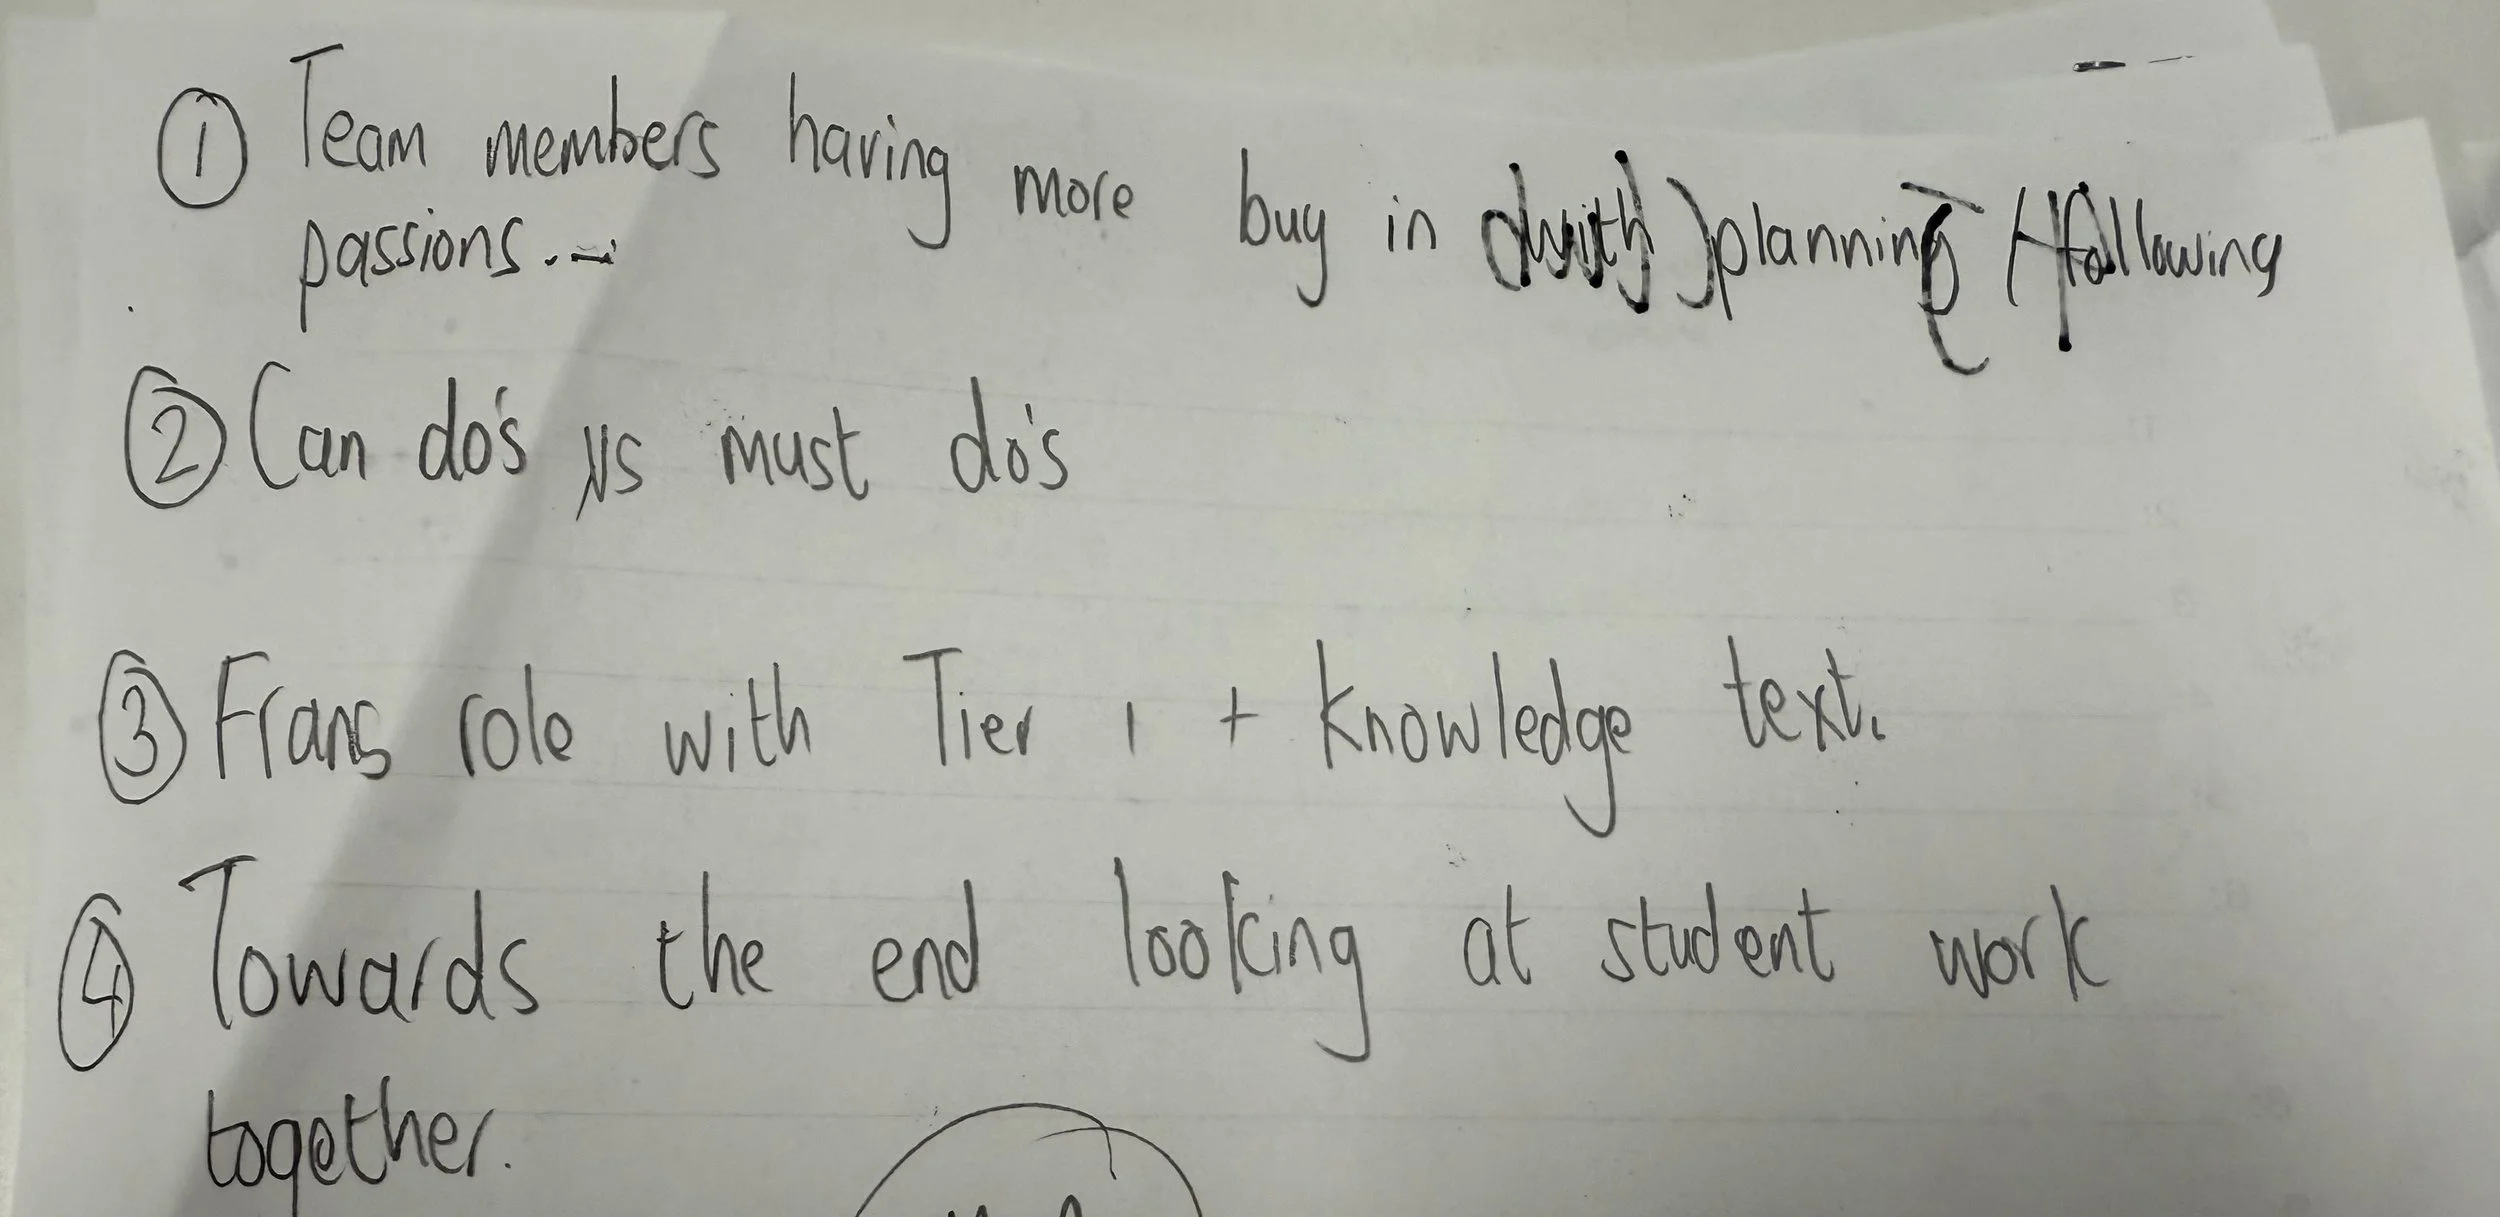 ① Team members having more buy in with planning / following
passions...
② Can do's vs must do's
③ Frans role with Tier 1 + knowledge text.
④ Towards the end looking at student work
together.